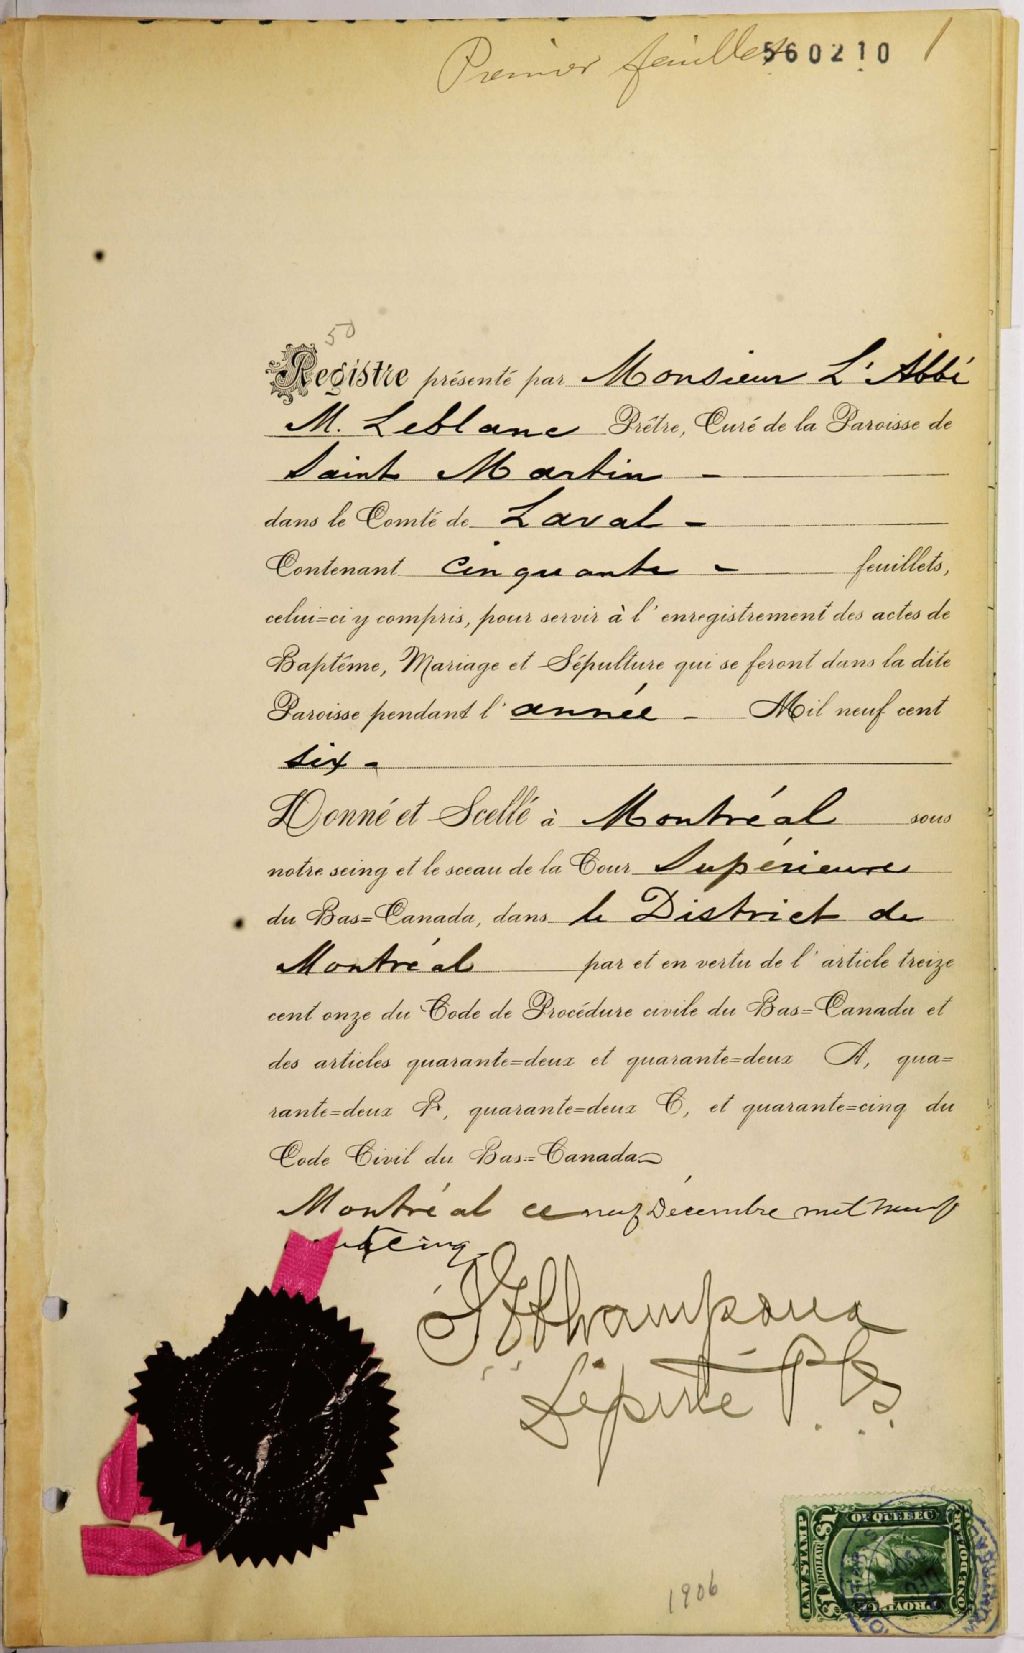 Premier feuillet 560210 1
50
Registre présenté par Monsieur L'Abbé
M. Leblanc Prêtre, Curé de la Paroisse de
Saint Martin -
dans le Comté de Laval -
Contenant cinquante - feuillets,
celui=ci y compris, pour servir à l'enregistrement des actes de
Baptême, Mariage et Sépulture qui se feront dans la dite
Paroisse pendant l'année - Mil neuf cent
six -
Donné et Scellé à Montréal sous
notre seing et le sceau de la Cour Supérieure
du Bas=Canada, dans le District de
Montréal par et en vertu de l'article treize
cent onze du Code de Procédure civile du Bas=Canada et
des articles quarante=deux et quarante=deux A, qua=
rante=deux B, quarante=deux C, et quarante=cinq du
Code Civil du Bas=Canada
Montréal ce neuf Décembre mil neuf
cinq
Champoux
Députe P. C. S.
LAW STAMP
$1 DOLLAR
OF QUEBEC
PROVINCE
1906